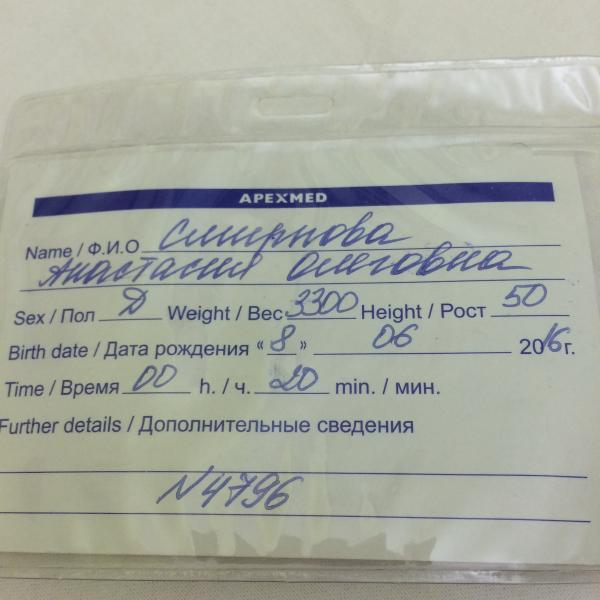 APEXMED
Name / Ф.И.О Смирнова
Анастасия Олеговна
Sex / Пол Д Weight / Вес 3300 Height / Рост 50
Birth date / Дата рождения « 8 » 06 2016г.
Time / Время 00 h. / ч. 20 min. / мин.
Further details / Дополнительные сведения
N4796